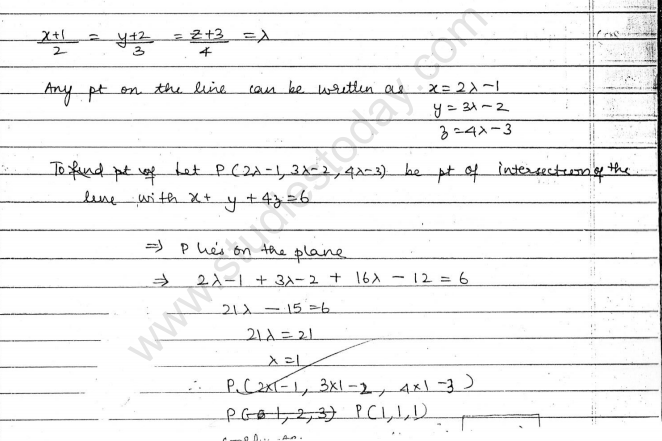 x+1/2 = y+2/3 = z+3/4 = λ
Any pt on the line can be written as x = 2λ-1
y = 3λ-2
z = 4λ-3
To find pt of Let P (2λ-1, 3λ-2, 4λ-3) be pt of intersection of the
line with x + y + 4z = 6
⇒ P lies on the plane
⇒ 2λ-1 + 3λ-2 + 16λ - 12 = 6
21λ - 15 = 6
21λ = 21
λ = 1
∴ P (2×1-1, 3×1-2, 4×1-3)
P(1, 2, 3) P(1,1,1)
www.studiestoday.com